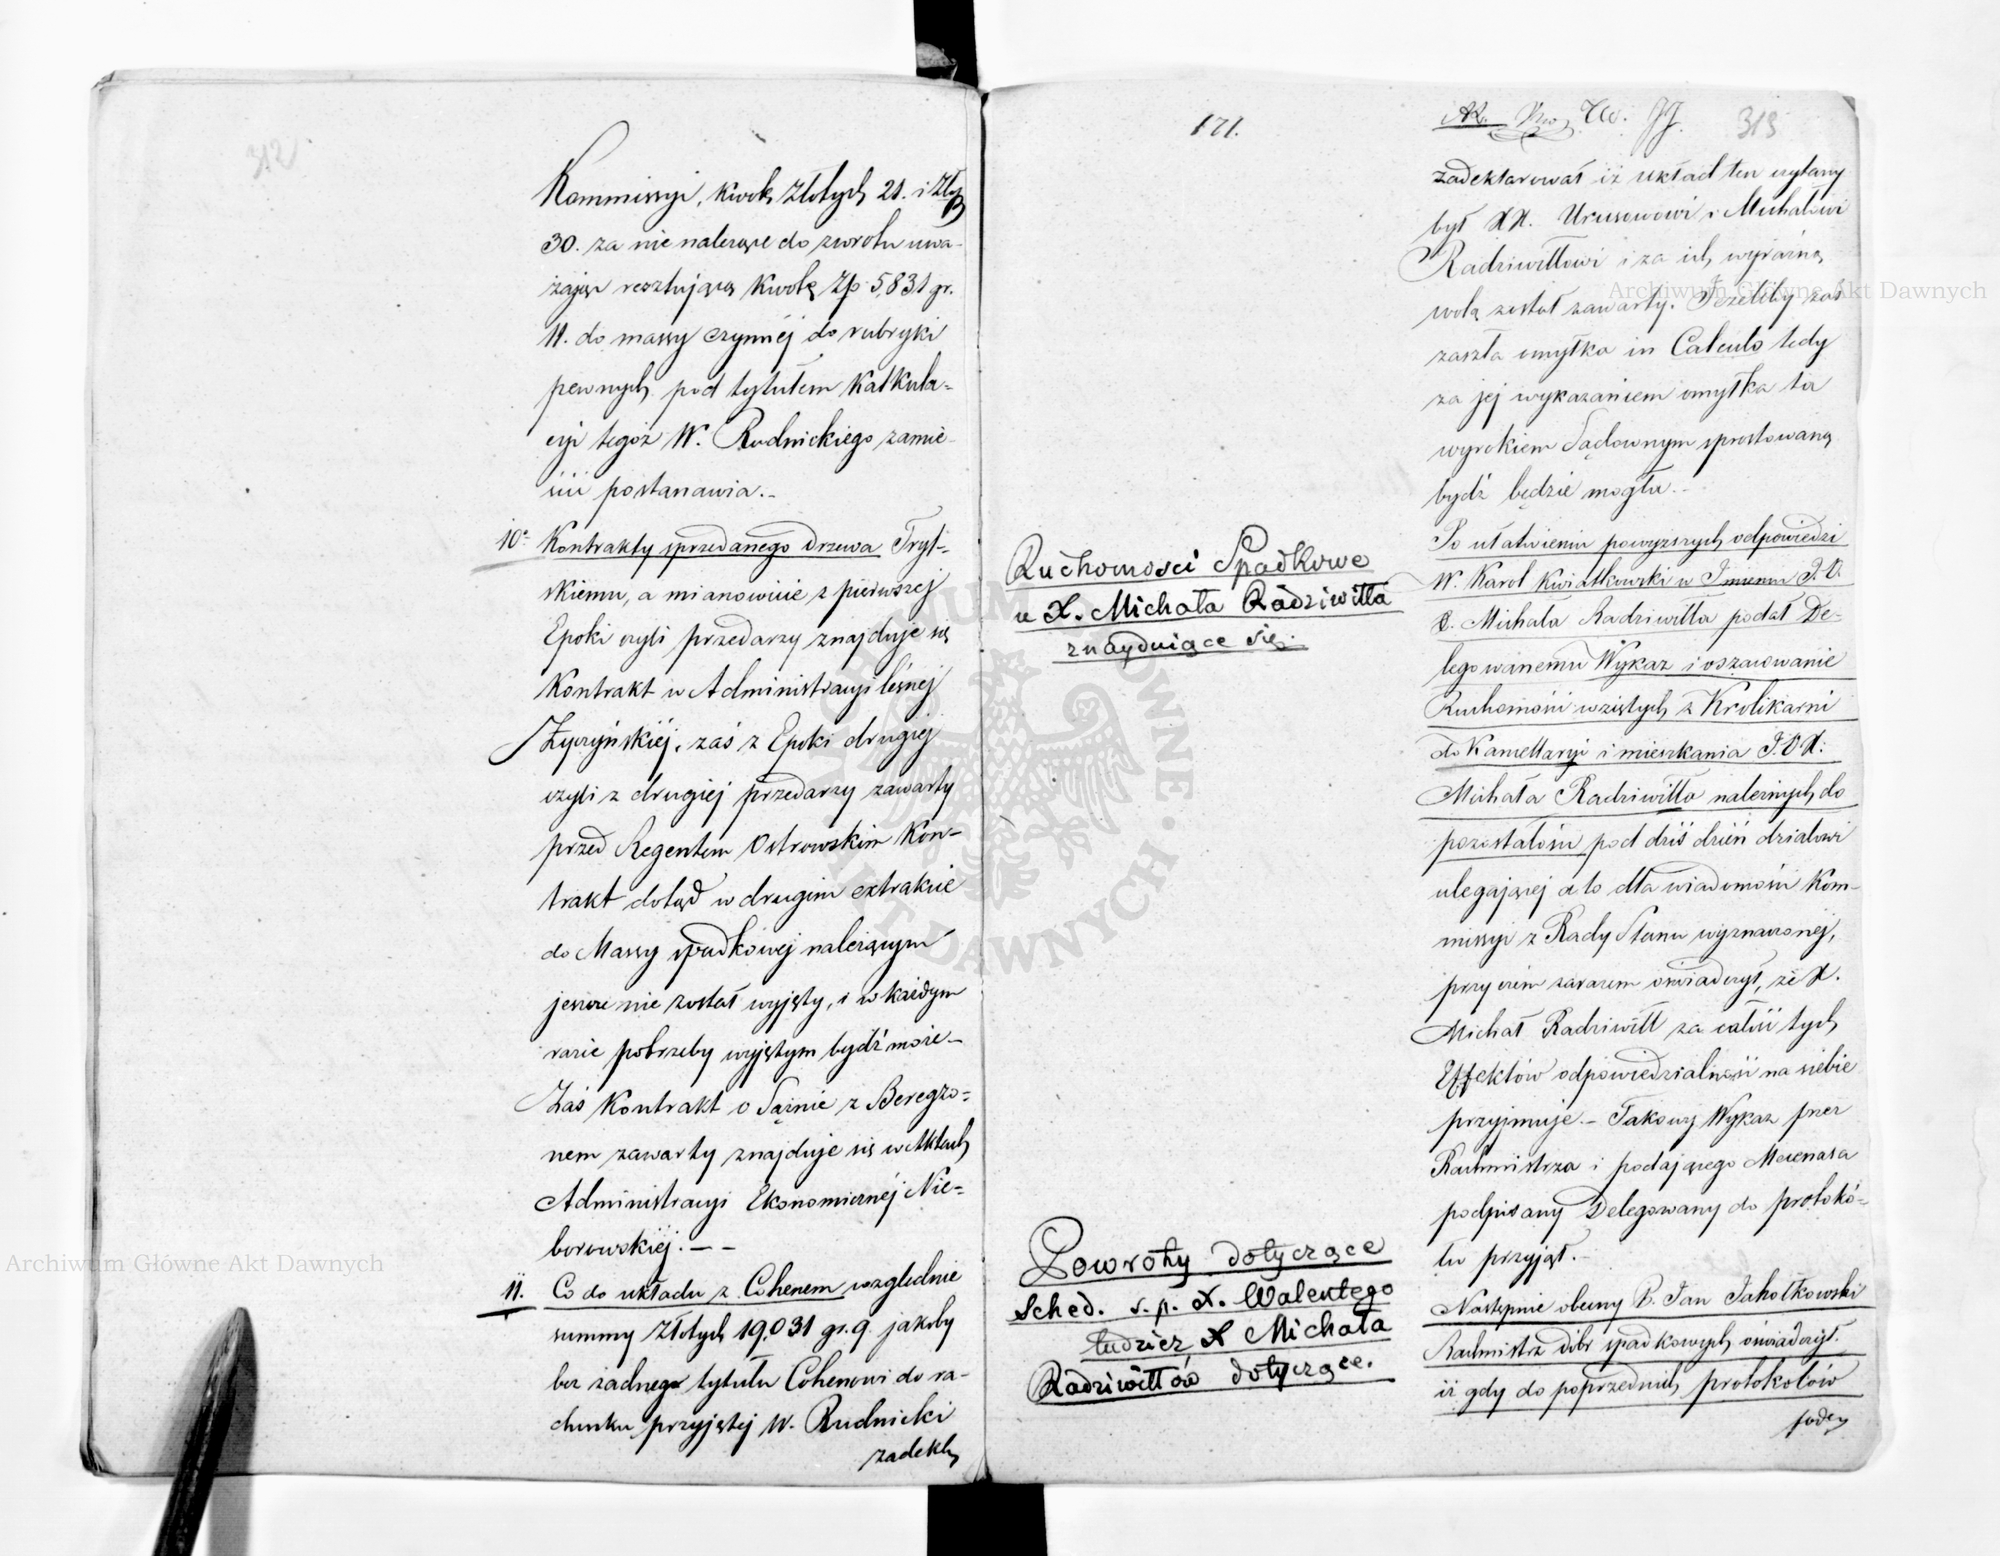 312
Kommissyi, kwotę złotych 21. i Złp
30. za nie należące do zwrotu uwa-
żając resztującą kwotę Zp 5,831 gr.
11. do massy czynnéj do rubryki
pewnych pod tytułem Kalkula-
cyi tegoż W. Rudnickiego zamie-
ścić postanawia.-
10º Kontrakty sprzedanego drzewa Tryl-
skiemu, a mianowicie z pierwszej
Epoki czyli przedarzy znajduje się
Kontrakt w Administracyi leśnej
Życzyńskiéj, zaś z Epoki drugiéj
czyli z drugiej przedarzy zawarty
przed Regentem Ostrowskim Kon-
trakt dotąd w drugim extrakcie
do Massy spadkowej należącym
jeszcze nie został wyjęty, i w każdym
razie potrzeby wyjętym bydź może-
Zaś Kontrakt o Sążnie z Beregzo-
nem zawarty znajduje się w Aktach
Administracyi Ekonomicznéj Nie-
borowskiéj. - -
11. Co do układu z Cohenem względnie
summy złotych 19,031 gr. 9 jakoby
bez żadnego tytułu Cohenowi do ra-
chunku przyjętej W. Rudnicki
zadekl
171.
313
zadeklarował iż układ ten czytany
był XX. Urusowowi i Michałowi
Radziwiłłowi i za ich wyraźną
wolą został zawarty. Jeżeliby zaś
zaszła omyłka in Calculo tedy
za jej wykazaniem omyłka ta
wyrokiem Sądownym sprostowaną
bydź będzie mogła.-
Ruchomosci Spadkowe
u X. Michała Radziwiłła
znayduiące się.
Po ułatwieniu powyższych odpowiedzi
W. Karol Kwiatkowski w Imieniu J. O.
X. Michała Radziwiłła podał De-
legowanemu Wykaz i oszacowanie
Ruchomości wziętych z Krolikarni
do Kancellaryi i mieszkania J. O X.
Michała Radziwiłła należnych do
pozostałości pod dziś dzień działowi
ulegającej a to dla wiadomości Kom-
missyi z Rady Stanu wyznaczonej,
przyczem zarazem oświadczył, że X.
Michał Radziwiłł za całość tych
Effektów odpowiedzialność na siebie
przyjmuje.- Takowy Wykaz przez
Rachmistrza i podającego Mecenasa
podpisany Delegowany do protokó-
łu przyjął.-
Powroty dotyczące
Sched. s. p. X. Walentego
tudzież X Michała
Radziwiłłów dotyczące.
Następnie obecny P. Jan Jakołkowski
Rachmistrz dóbr spadkowych oświadczył.
iż gdy do poprzednich protokołów